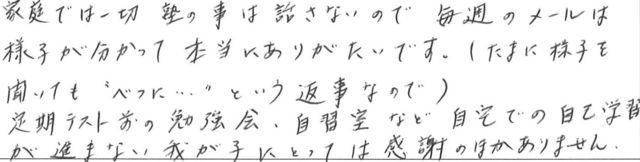 家庭では一切 塾の事は話さないので 毎週のメールは
様子が分かって 本当にありがたいです。(たまに様子を
聞いても “べつに…” という返事なので)
定期テスト前の勉強会、自習室など 自宅での自己学習
が進まない我が子にとっては感謝のほかありません.